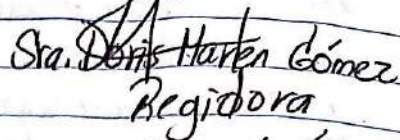 Sra. Doris Haren Gómez
Regidora